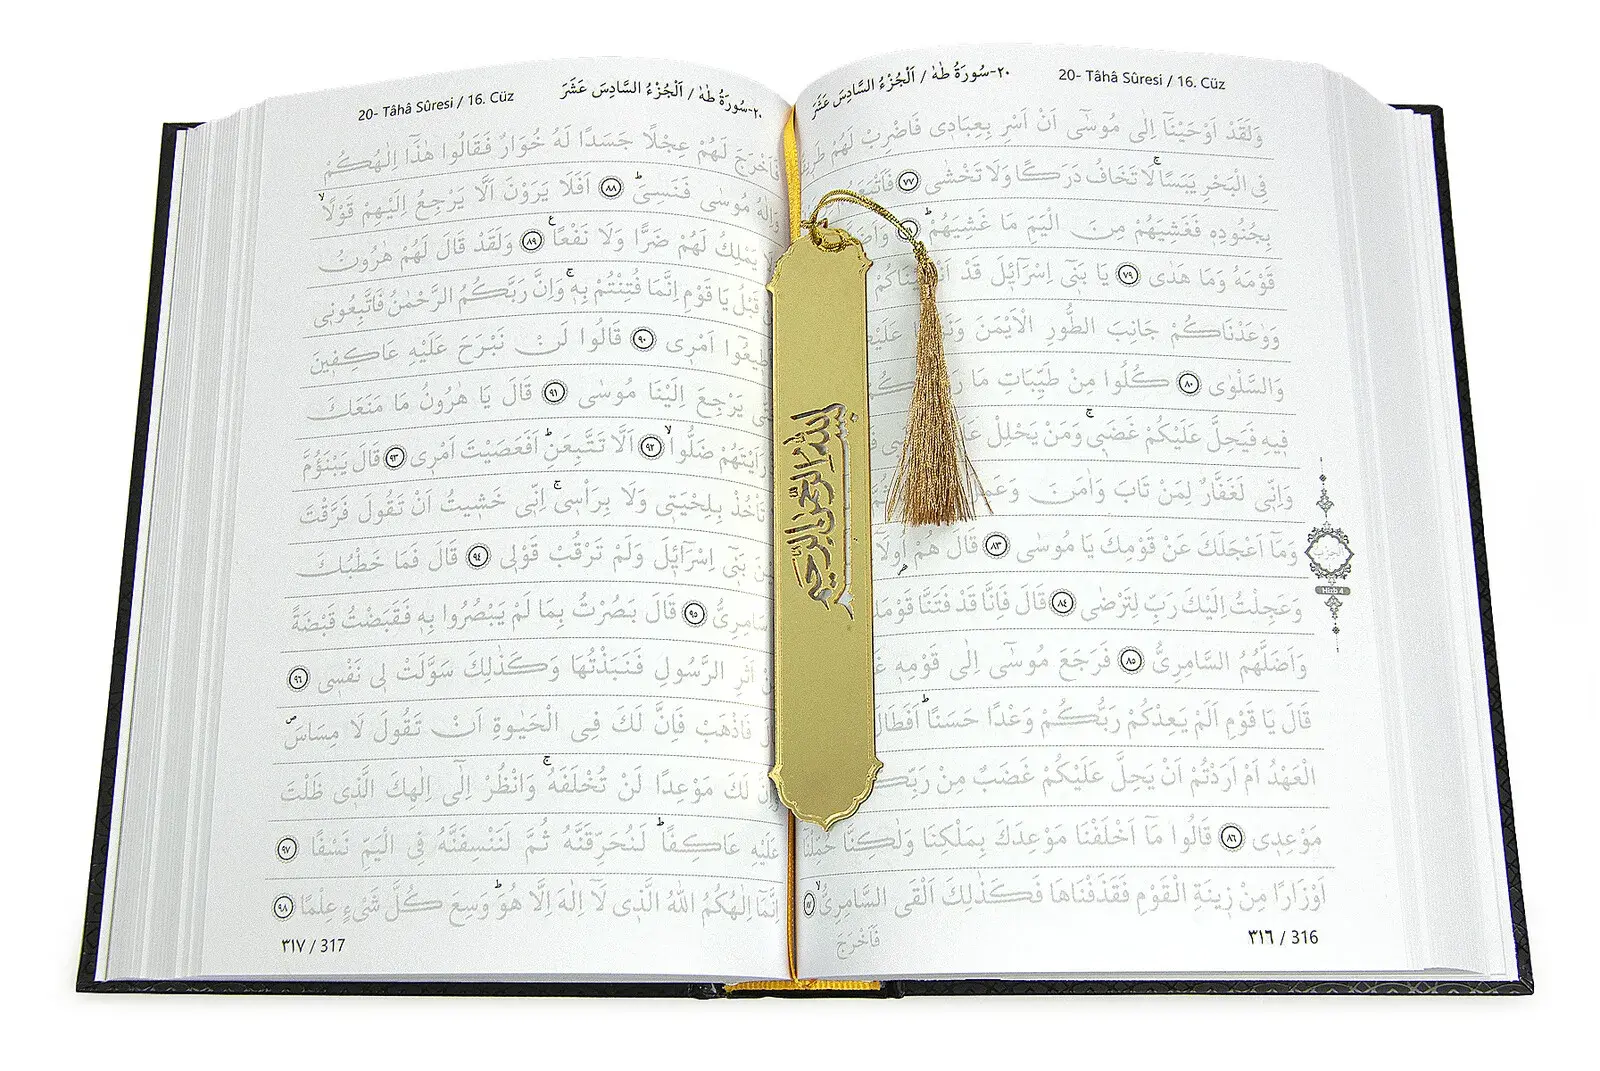 ٢٠-سُورَةُ طٰهٰ / اَلْجُزْءُ السَّادِسَ عَشَرَ
20- Tâhâ Sûresi / 16. Cüz
وَلَقَدْ اَوْحَيْنَٓا اِلٰى مُوسٰٓى اَنْ اَسْرِ بِعِبَادٖى فَاضْرِبْ لَهُمْ
فِى الْبَحْرِ يَبَسًاۙ لَا تَخَافُ دَرَكًا وَلَا تَخْشٰى ٧٧
بِجُنُودِهٖ فَغَشِيَهُمْ مِنَ الْيَمِّ مَا غَشِيَهُمْ
قَوْمَهُ وَمَا هَدٰى ٧٩ يَا بَنٖٓى اِسْرَٓائٖلَ قَدْ
وَوٰعَدْنَاكُمْ جَانِبَ الطُّورِ الْاَيْمَنَ
وَالسَّلْوٰى ٨٠ كُلُوا مِنْ طَيِّبَاتِ مَا
فٖيهِ فَيَحِلَّ عَلَيْكُمْ غَضَبٖى وَمَنْ يَحْلِلْ
وَاِنّٖى لَغَفَّارٌ لِمَنْ تَابَ وَاٰمَنَ
وَمَٓا اَعْجَلَكَ عَنْ قَوْمِكَ يَا مُوسٰى ٨٣ قَالَ هُمْ
وَعَجِلْتُ اِلَيْكَ رَبِّ لِتَرْضٰى ٨٤ قَالَ فَاِنَّا قَدْ فَتَنَّا
وَاَضَلَّهُمُ السَّامِرِىُّ ٨٥ فَرَجَعَ مُوسٰٓى اِلٰى قَوْمِهٖ
قَالَ يَا قَوْمِ اَلَمْ يَعِدْكُمْ رَبُّكُمْ وَعْدًا حَسَنًا
الْعَهْدُ اَمْ اَرَدْتُمْ اَنْ يَحِلَّ عَلَيْكُمْ غَضَبٌ مِنْ
مَوْعِدٖى ٨٦ قَالُوا مَٓا اَخْلَفْنَا مَوْعِدَكَ بِمَلْكِنَا وَلٰكِنَّا
اَوْزَارًا مِنْ زٖينَةِ الْقَوْمِ فَقَذَفْنَاهَا فَكَذٰلِكَ اَلْقَى السَّامِرِىُّ
فَاَخْرَجَ
٣١٦ / 316
Hizb 4
بسم الله الرحمن الرحيم
٢٠-سُورَةُ طٰهٰ / اَلْجُزْءُ السَّادِسَ عَشَرَ
20- Tâhâ Sûresi / 16. Cüz
فَاَخْرَجَ لَهُمْ عِجْلًا جَسَدًا لَهُ خُوَارٌ فَقَالُوا هٰذَٓا اِلٰهُكُمْ
وَاِلٰهُ مُوسٰى فَنَسِىَ ٨٨ اَفَلَا يَرَوْنَ اَلَّا يَرْجِعُ اِلَيْهِمْ قَوْلًا
يَمْلِكُ لَهُمْ ضَرًّا وَلَا نَفْعًا ٨٩ وَلَقَدْ قَالَ لَهُمْ هٰرُونُ
قَبْلُ يَا قَوْمِ اِنَّمَا فُتِنْتُمْ بِهٖ وَاِنَّ رَبَّكُمُ الرَّحْمٰنُ فَاتَّبِعُونٖى
اَمْرٖى ٩٠ قَالُوا لَنْ نَبْرَحَ عَلَيْهِ عَاكِفٖينَ
يَرْجِعَ اِلَيْنَا مُوسٰى ٩١ قَالَ يَا هٰرُونُ مَا مَنَعَكَ
رَاَيْتَهُمْ ضَلُّوا ٩٢ اَلَّا تَتَّبِعَنِ اَفَعَصَيْتَ اَمْرٖى ٩٣ قَالَ يَبْنَؤُمَّ
تَاْخُذْ بِلِحْيَتٖى وَلَا بِرَاْسٖى اِنّٖى خَشٖيتُ اَنْ تَقُولَ فَرَّقْتَ
بَنٖٓى اِسْرَٓائٖلَ وَلَمْ تَرْقُبْ قَوْلٖى ٩٤ قَالَ فَمَا خَطْبُكَ
٩٥ قَالَ بَصُرْتُ بِمَا لَمْ يَبْصُرُوا بِهٖ فَقَبَضْتُ قَبْضَةً
اَثَرِ الرَّسُولِ فَنَبَذْتُهَا وَكَذٰلِكَ سَوَّلَتْ لٖى نَفْسٖى ٩٦
فَاذْهَبْ فَاِنَّ لَكَ فِى الْحَيٰوةِ اَنْ تَقُولَ لَا مِسَاسَ
لَكَ مَوْعِدًا لَنْ تُخْلَفَهُ وَانْظُرْ اِلٰٓى اِلٰهِكَ الَّذٖى ظَلْتَ
عَلَيْهِ عَاكِفًا لَنُحَرِّقَنَّهُ ثُمَّ لَنَنْسِفَنَّهُ فِى الْيَمِّ نَسْفًا ٩٧
اِنَّمَٓا اِلٰهُكُمُ اللّٰهُ الَّذٖى لَٓا اِلٰهَ اِلَّا هُوَ وَسِعَ كُلَّ شَىْءٍ عِلْمًا ٩٨
٣١٧ / 317